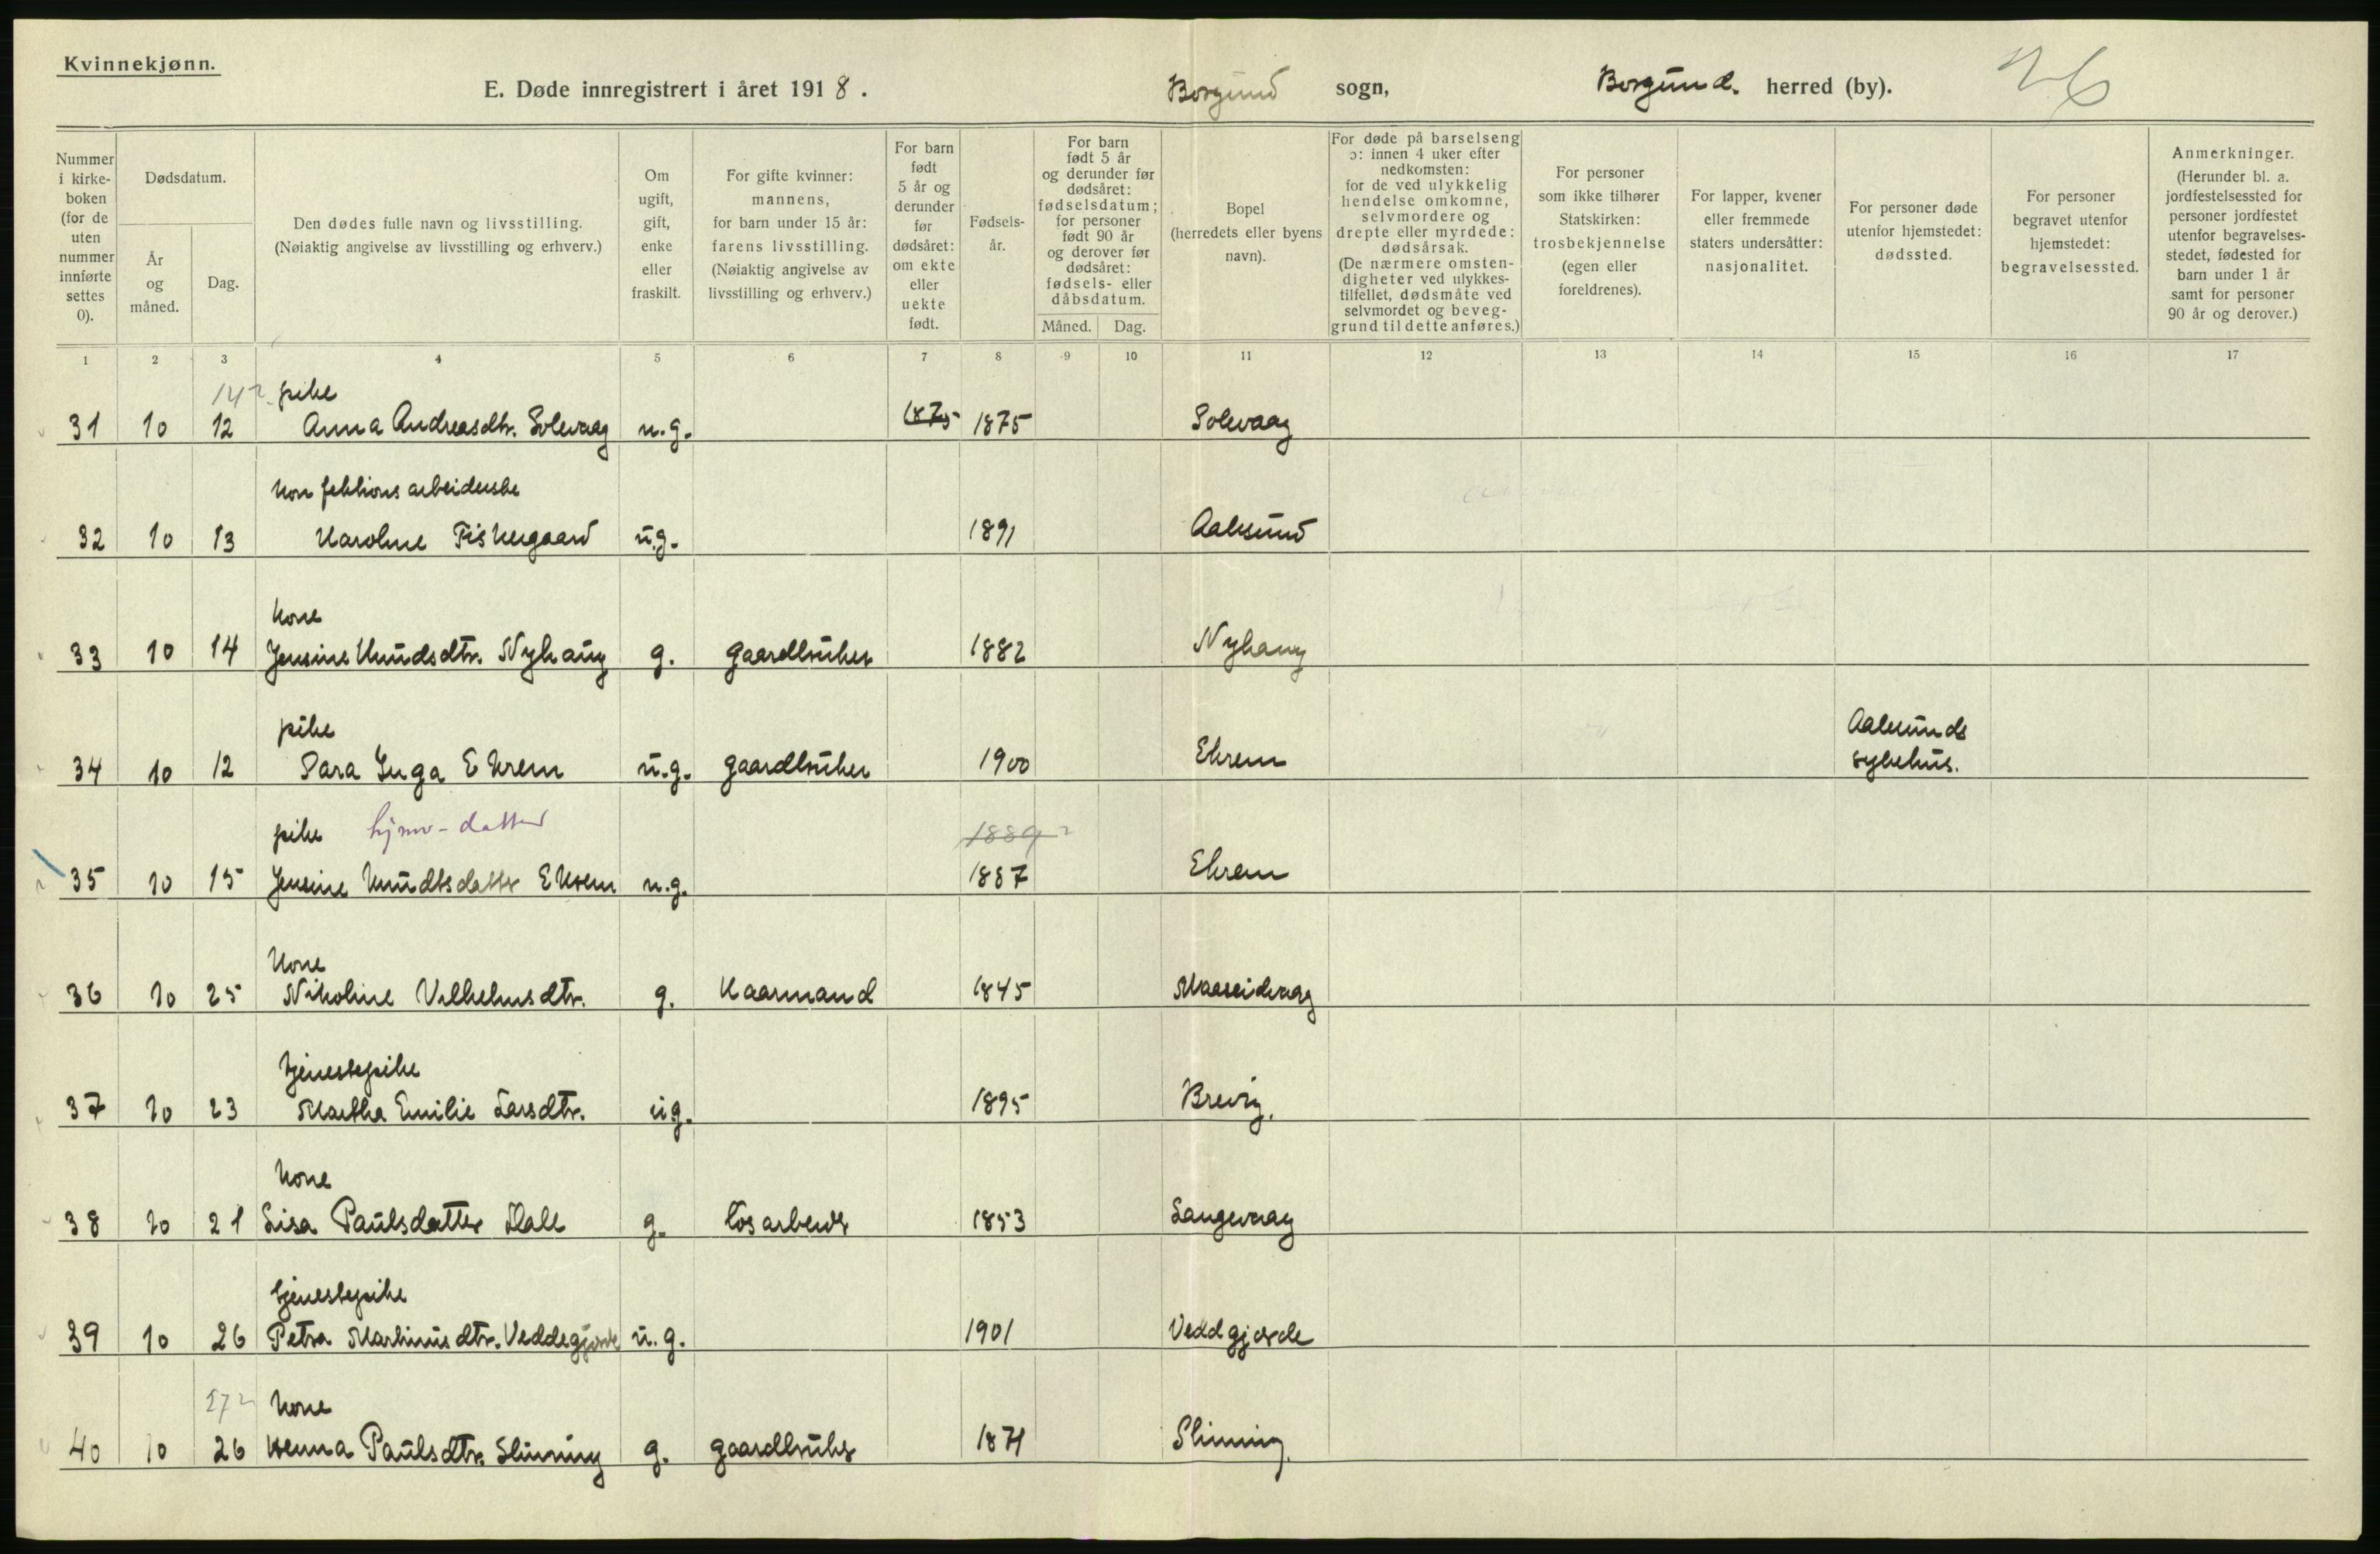 Kvinnekjønn.
E. Døde innregistrert i året 1918. Borgund sogn, Borgund. herred (by). 26
Nummer i kirke-boken (for de uten nummer innførte settes 0).
Dødsdatum.
År og måned.
Dag.
Den dødes fulle navn og livsstilling. (Nøiaktig angivelse av livsstilling og erhverv.)
Om ugift, gift, enke eller fraskilt.
For gifte kvinner: mannens, for barn under 15 år: farens livsstilling. (Nøiaktig angivelse av livsstilling og erhverv.)
For barn født 5 år og derunder før dødsåret: om ekte eller uekte født.
Fødsels-år.
For barn født 5 år og derunder før dødsåret: fødselsdatum; for personer født 90 år og derover før dødsåret: fødsels- eller dåbsdatum.
Måned. Dag.
Bopel (herredets eller byens navn).
For døde på barselseng ɔ: innen 4 uker efter nedkomsten: for de ved ulykkelig hendelse omkomne, selvmordere og drepte eller myrdede: dødsårsak. (De nærmere omsten-digheter ved ulykkes-tilfellet, dødsmåte ved selvmordet og beveg-grund til dette anføres.)
For personer som ikke tilhører Statskirken: trosbekjennelse (egen eller foreldrenes).
For lapper, kvener eller fremmede staters undersåtter: nasjonalitet.
For personer døde utenfor hjemstedet: dødssted.
For personer begravet utenfor hjemstedet: begravelsessted.
Anmerkninger. (Herunder bl. a. jordfestelsessted for personer jordfestet utenfor begravelses-stedet, fødested for barn under 1 år samt for personer 90 år og derover.)
1 2 3 4 5 6 7 8 9 10 11 12 13 14 15 16 17
14? pike
31 10 12 Anna Andreasdtr. Solevaag u.g. 1875 1875 Solevaag
Konfektionsarbeiderske
32 10 13 Karoline Fiskergaard u.g. 1891 Aalesund
Kone
33 10 14 Jensine Knudsdtr. Nyhaug g. gaardbruker 1882 Nyhaug
pike Aalesunds
34 10 12 Sara Inga Ekrem u.g. gaardbruker 1900 Ekrem sykehus.
pike hjmv-datter 1889?
35 10 15 Jensine Knudtsdatter Ekrem u.g. 1887 Ekrem
Kone
36 10 25 Nikoline Vilhelmsdtr. g. Kaarmand 1845 Maaseidvaag
tjenestepike
37 10 23 Martha Emilie Larsdtr. ug. 1895 Brevig.
Kone
38 10 21 Lisa Paulsdatter Dale g. løsarbeider 1853 Langevaag
tjenestepike
39 10 26 Petra Martinusdtr. Veddegjerde u.g. 1901 Veddgjerde
27? Kone
40 10 26 Paulsdtr. Slinning g. gaardbruker 1871 Slinning.